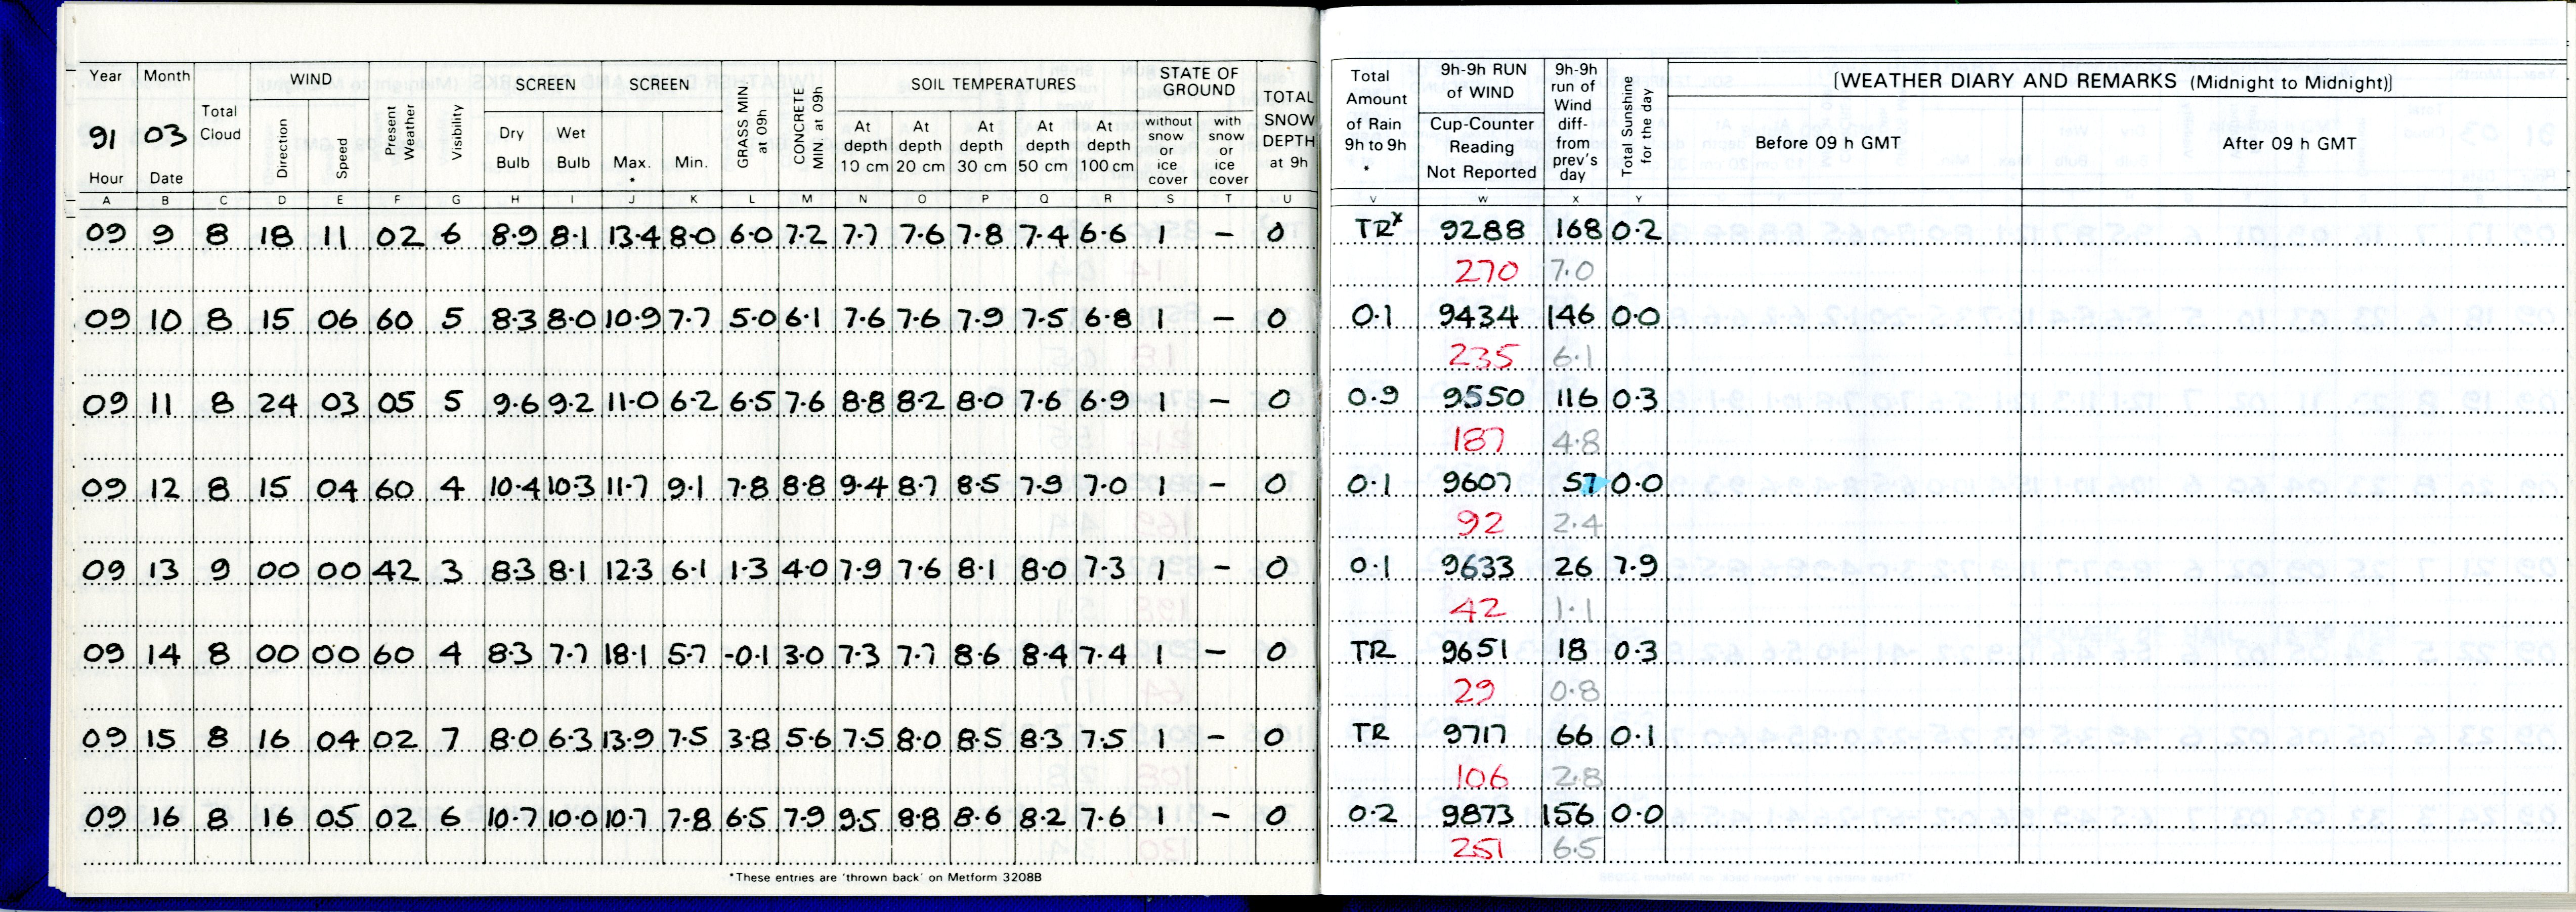 Year Month WIND Present Weather Visibility SCREEN SCREEN GRASS MIN. at 09h CONCRETE MIN. at 09h SOIL TEMPERATURES STATE OF GROUND TOTAL SNOW DEPTH at 9h
91 03 Total Cloud Direction Speed Dry Bulb Wet Bulb Max. * Min. At depth 10 cm At depth 20 cm At depth 30 cm At depth 50 cm At depth 100 cm without snow or ice cover with snow or ice cover
Hour Date
A B C D E F G H I J K L M N O P Q R S T U
09 9 8 18 11 02 6 8.9 8.1 13.4 8.0 6.0 7.2 7.7 7.6 7.8 7.4 6.6 1 – 0
09 10 8 15 06 60 5 8.3 8.0 10.9 7.7 5.0 6.1 7.6 7.6 7.9 7.5 6.8 1 – 0
09 11 8 24 03 05 5 9.6 9.2 11.0 6.2 6.5 7.6 8.8 8.2 8.0 7.6 6.9 1 – 0
09 12 8 15 04 60 4 10.4 10.3 11.7 9.1 7.8 8.8 9.4 8.7 8.5 7.9 7.0 1 – 0
09 13 9 00 00 42 3 8.3 8.1 12.3 6.1 1.3 4.0 7.9 7.6 8.1 8.0 7.3 1 – 0
09 14 8 00 00 60 4 8.3 7.7 18.1 5.7 -0.1 3.0 7.3 7.7 8.6 8.4 7.4 1 – 0
09 15 8 16 04 02 7 8.0 6.3 13.9 7.5 3.8 5.6 7.5 8.0 8.5 8.3 7.5 1 – 0
09 16 8 16 05 02 6 10.7 10.0 10.7 7.8 6.5 7.9 9.5 8.8 8.6 8.2 7.6 1 – 0
*These entries are 'thrown back' on Metform 3208B
Total Amount of Rain 9h to 9h * 9h-9h RUN of WIND Cup-Counter Reading Not Reported 9h-9h run of Wind diff- from prev's day Total Sunshine for the day [WEATHER DIARY AND REMARKS (Midnight to Midnight)]
Before 09 h GMT After 09 h GMT
V W X Y
TRx 9288 168 0.2
270 7.0
0.1 9434 146 0.0
235 6.1
0.9 9550 116 0.3
187 4.8
0.1 9607 57 0.0
92 2.4
0.1 9633 26 7.9
42 1.1
TR 9651 18 0.3
29 0.8
TR 9717 66 0.1
106 2.8
0.2 9873 156 0.0
251 6.5